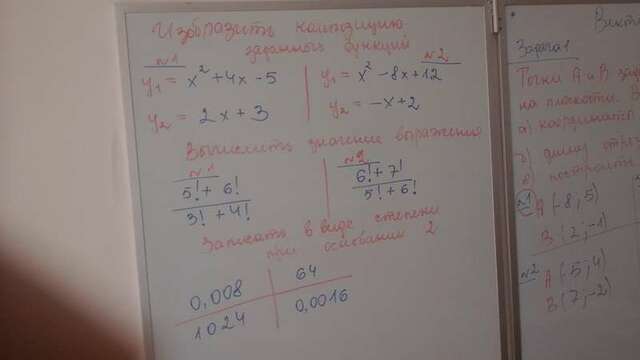 Изобразить композицию
заданных функций
№1
y₁ = x² + 4x - 5
y₂ = 2x + 3
№2.
y₁ = x² - 8x + 12
y₂ = -x + 2
Вычислить значение выражения
№1
5! + 6!
3! + 4!
№2
6! + 7!
5! + 6!
Записать в виде степени
при основании 2
0,008
64
1024
0,0016
Задача 1
Точки А и В
на плоскости.
а)
№1
A (-8; 5)
B (2; -1)
№2
B (7; -2)